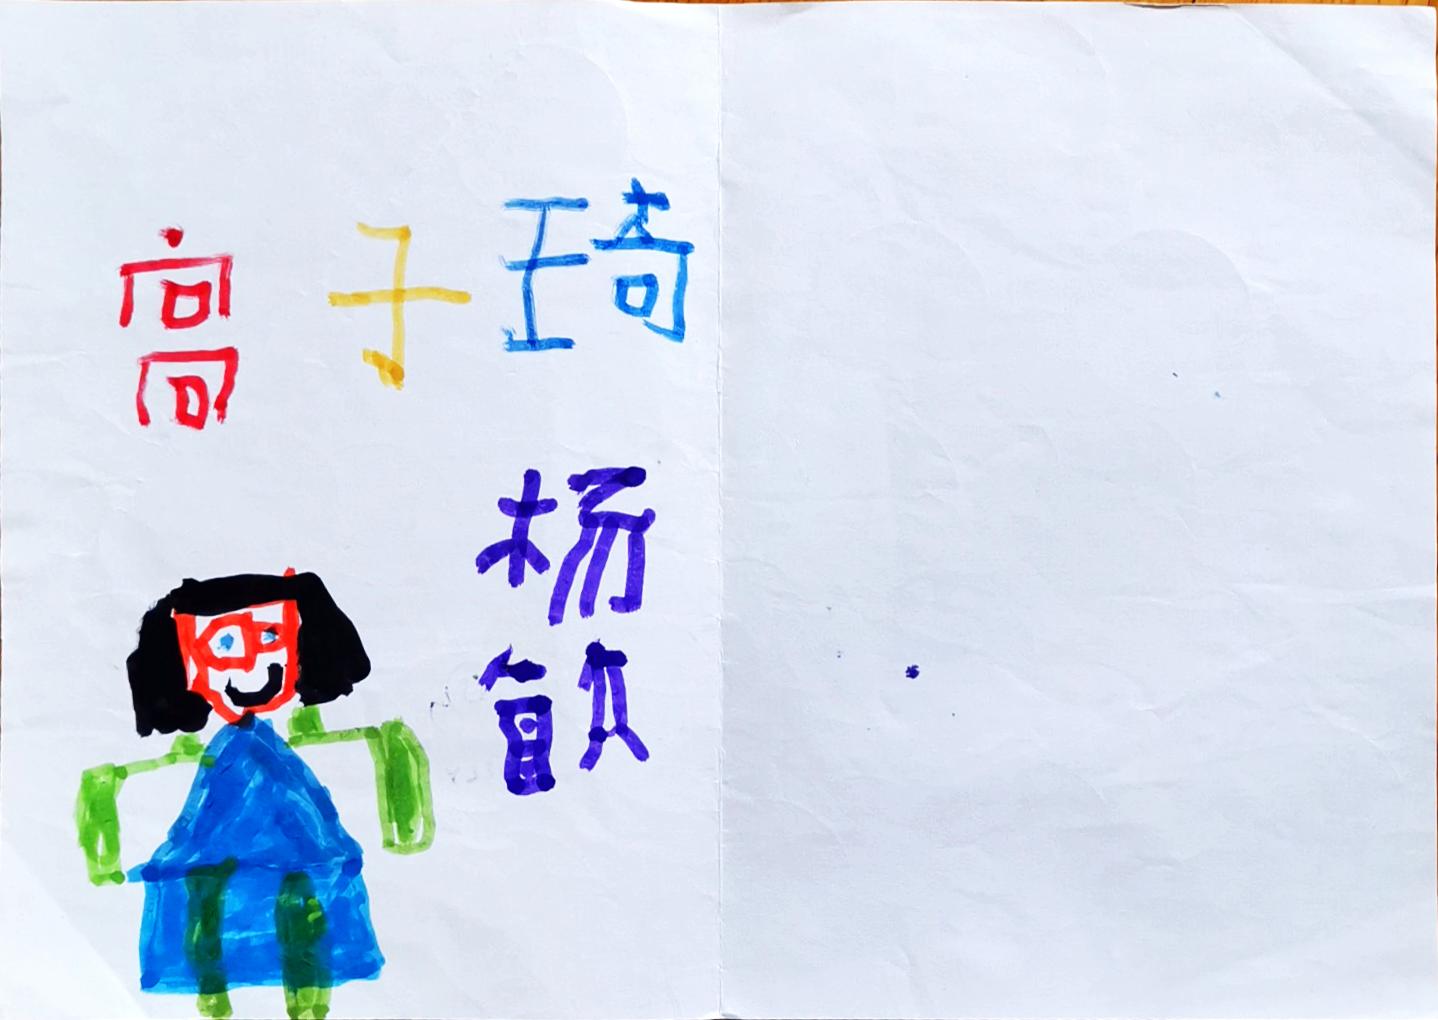 高子琦
杨